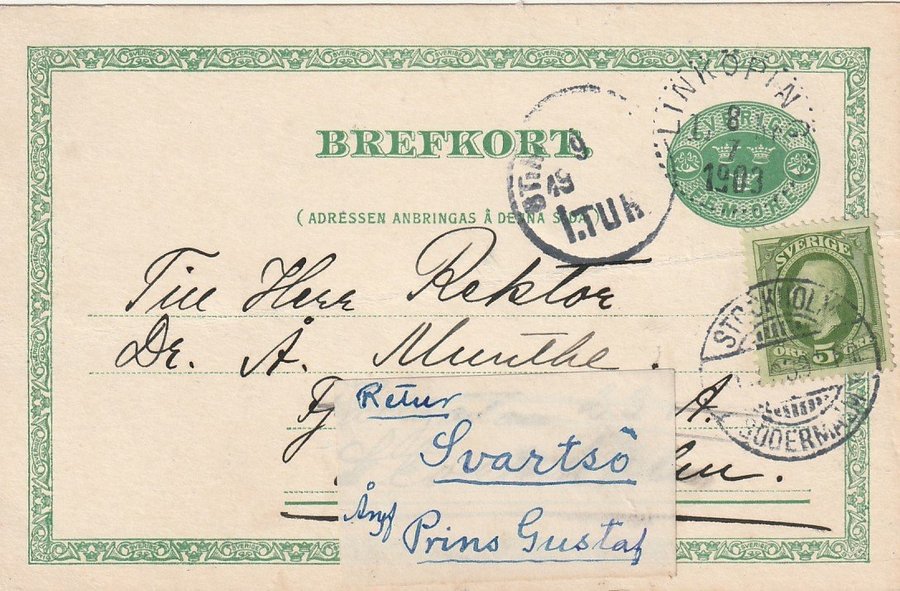 BREFKORT
(ADRESSEN ANBRINGAS Å DENNA SIDA)
LINKÖPING
8
7
1903
STH
9
19
1.TUR
SVERIGE
5 ÖRE
STOCKHOLM
SÖDERMALM
Till Herr Rektor
Dr. Å. Munthe.
Fj A.
Retur
Svartsö
Ångf
Prins Gustaf